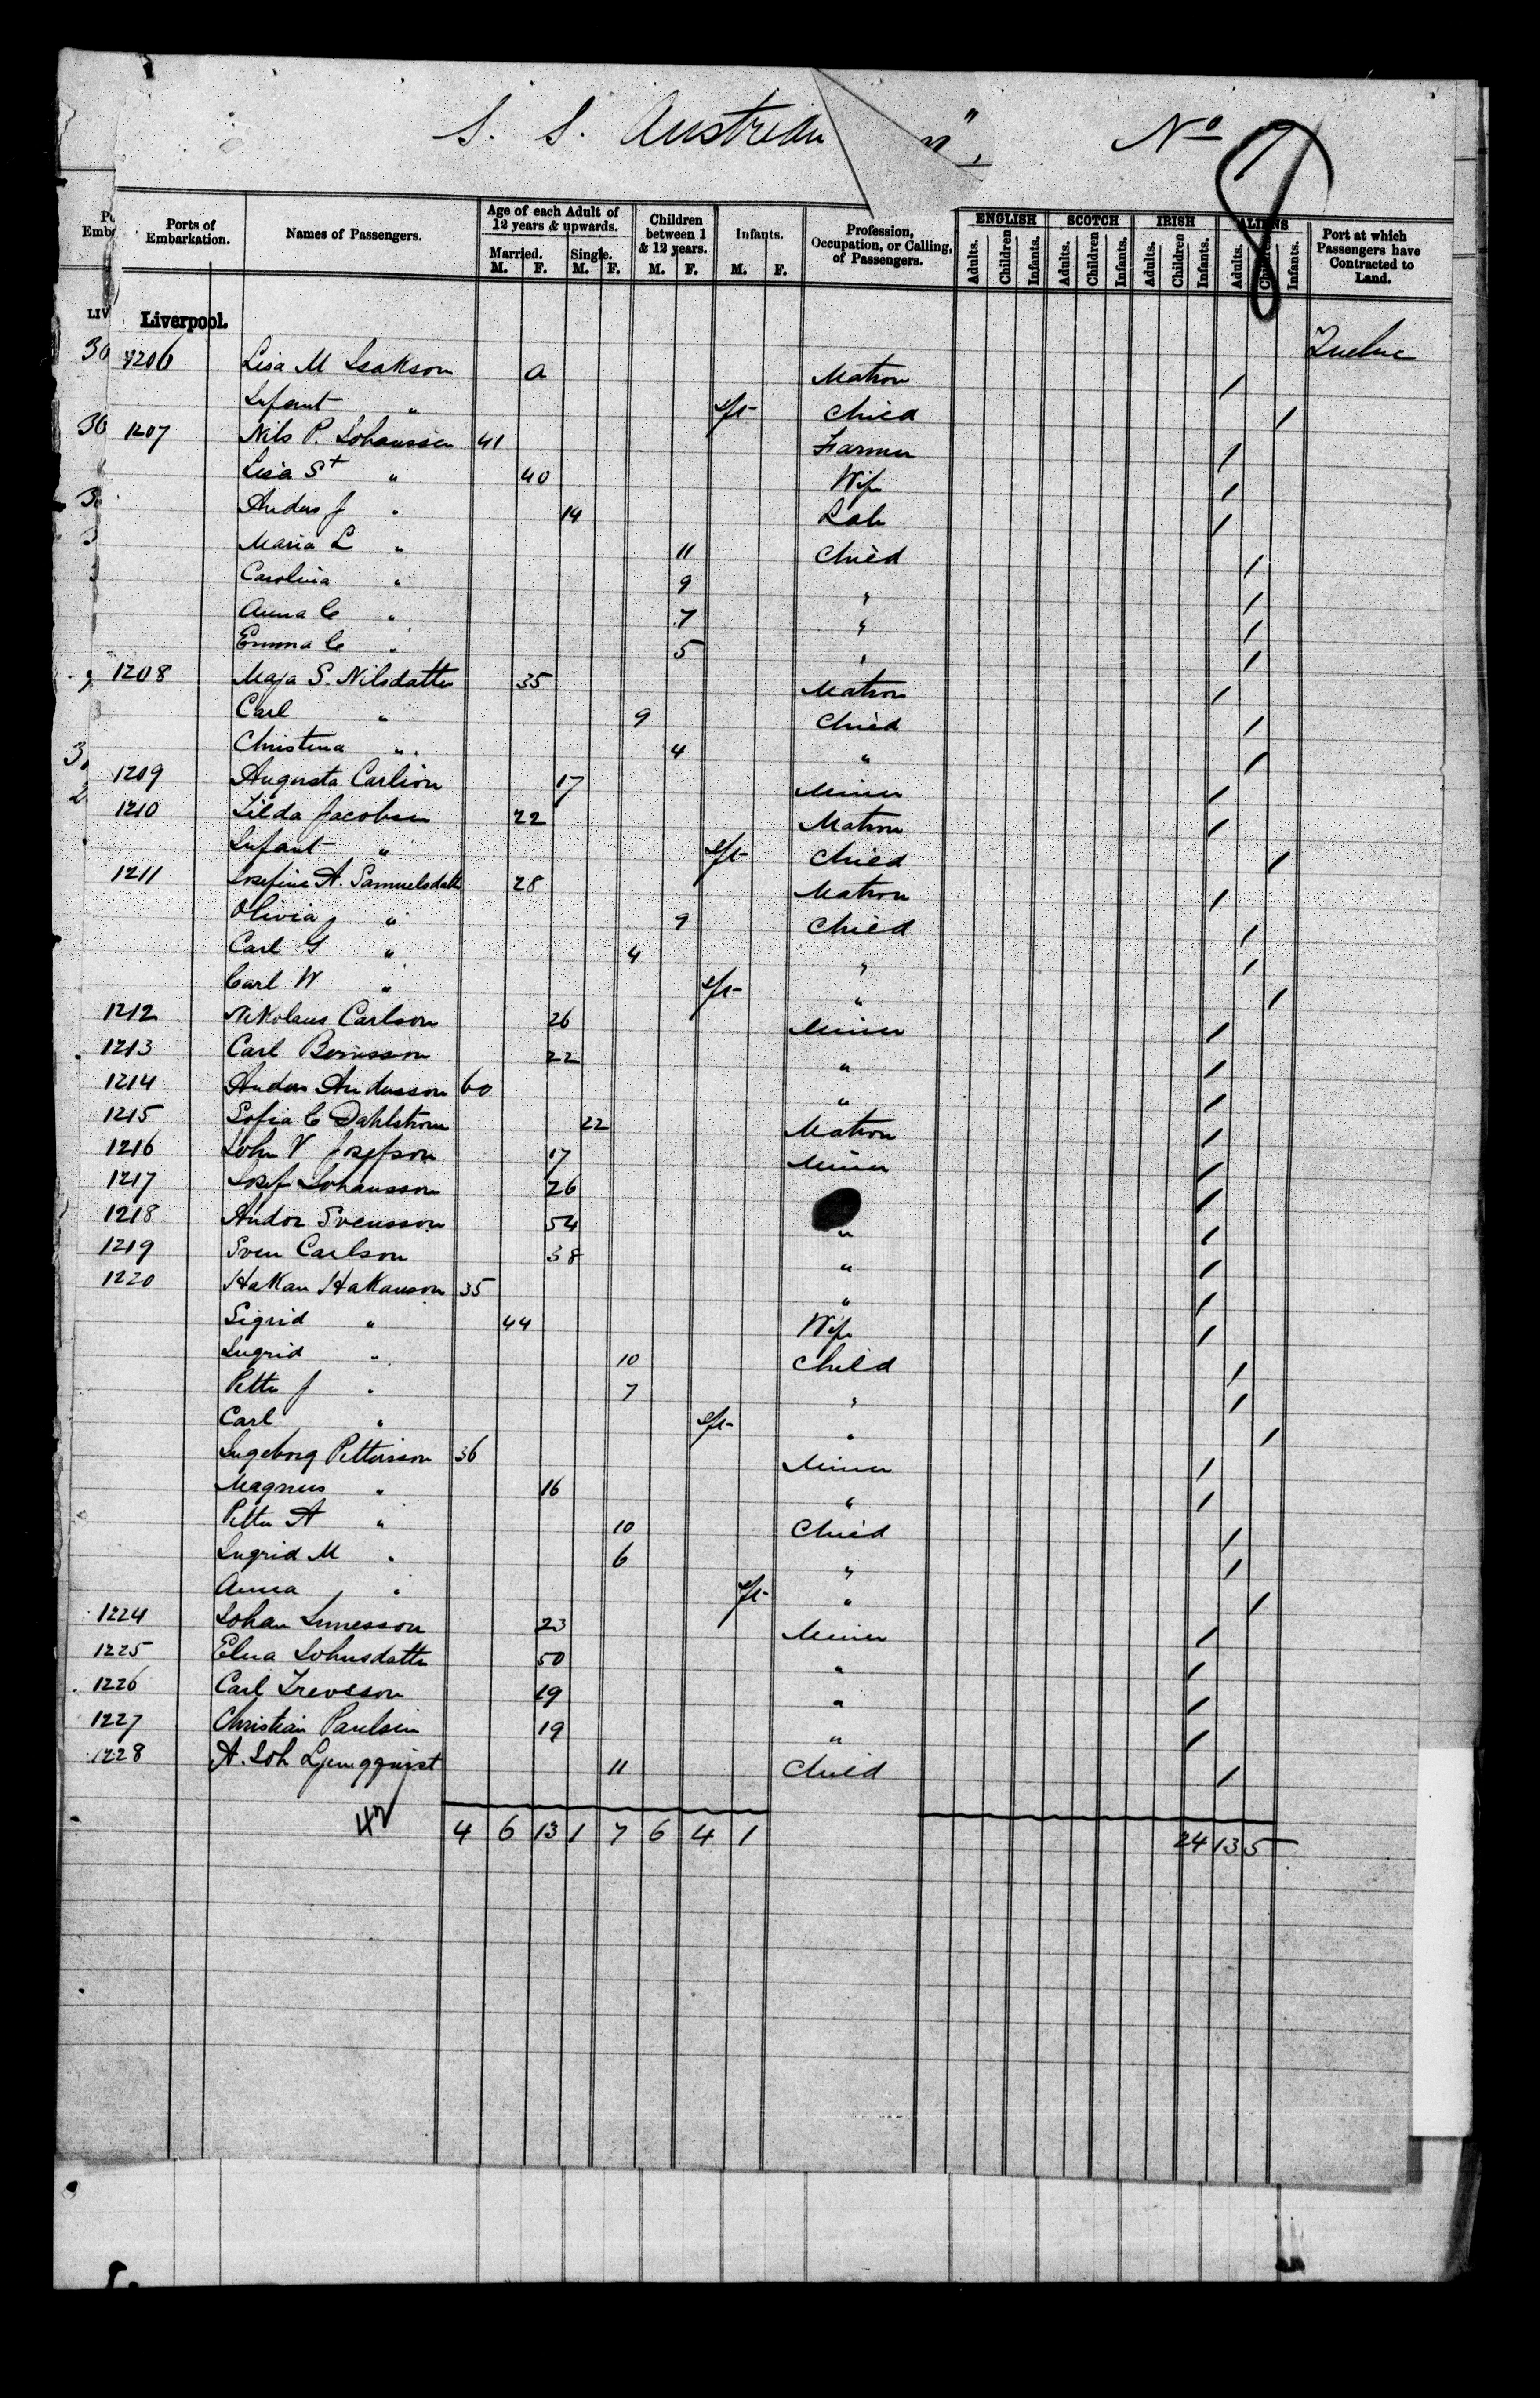 S. S. Austrian
n",
No
Ports of Embarkation.
Names of Passengers.
Age of each Adult of 12 years & upwards.
Married. M. F.
Single. M. F.
Children between 1 & 12 years. M. F.
Infants. M. F.
Profession, Occupation, or Calling, of Passengers.
ENGLISH Adults. Children Infants.
SCOTCH Adults. Children Infants.
IRISH Adults. Children Infants.
ALIENS Adults. Children Infants.
Port at which Passengers have Contracted to Land.
Liverpool.
Quebec
1206 Lisa M Isakson a Matron /
Infant " Inft Child /
1207 Nils P. Johanssen 41 Farmer /
Lisa St " 40 Wife /
Anders J " 14 Lab /
Maria L " 11 Child /
Carolina " 9 " /
Anna C " 7 " /
Emma C " 5 " /
1208 Maja S. Nilsdatter 35 Matron /
Carl " 9 Child /
Christina " 4 " /
1209 Augusta Carlion 17 Miner /
1210 Tilda Jacobsen 22 Matron /
Infant " Inft Child /
1211 Josefina A. Samuelsdatt 28 Matron /
Olivia J " 9 Child /
Carl G " 4 " /
Carl W " Inft " /
1212 Nikolaus Carlson 26 Miner /
1213 Carl Bernsson 22 " /
1214 Anders Andersson 60 " /
1215 Sofia C Dahlstrom 22 Matron /
1216 John V Josefson 17 Miner /
1217 Josef Johansson 26 /
1218 Andor Svensson 54 " /
1219 Sven Carlson 38 " /
1220 Hakan Hakanson 35 " /
Sigrid " 44 Wife /
Ingrid " 10 Child /
Petter J " 7 " /
Carl " Inft " /
Ingeborg Petterson 36 Miner /
Magnus " 16 " /
Petter A " 10 Child /
Ingrid M " 6 " /
Anna " Inft " /
1224 Johan 23 Miner /
1225 Elna Johnsdatter 50 " /
1226 Carl 19 " /
1227 Christian Paulsen 19 " /
1228 A. Joh Ljungqquist 11 Child /
42
4 6 13 1 7 6 4 1
24 13 5